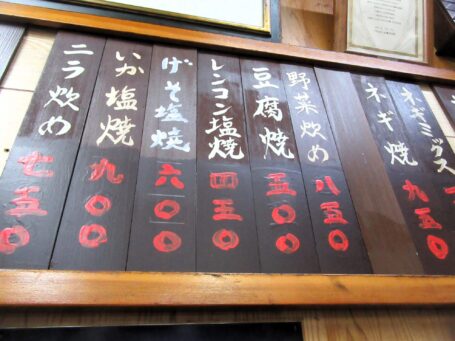 ネギミックス
ネギ焼 九五〇
野菜炒め 八五〇
豆腐焼 五〇〇
レンコン塩焼 四五〇
げそ塩焼 六〇〇
いか塩焼 九〇〇
ニラ炒め 七五〇